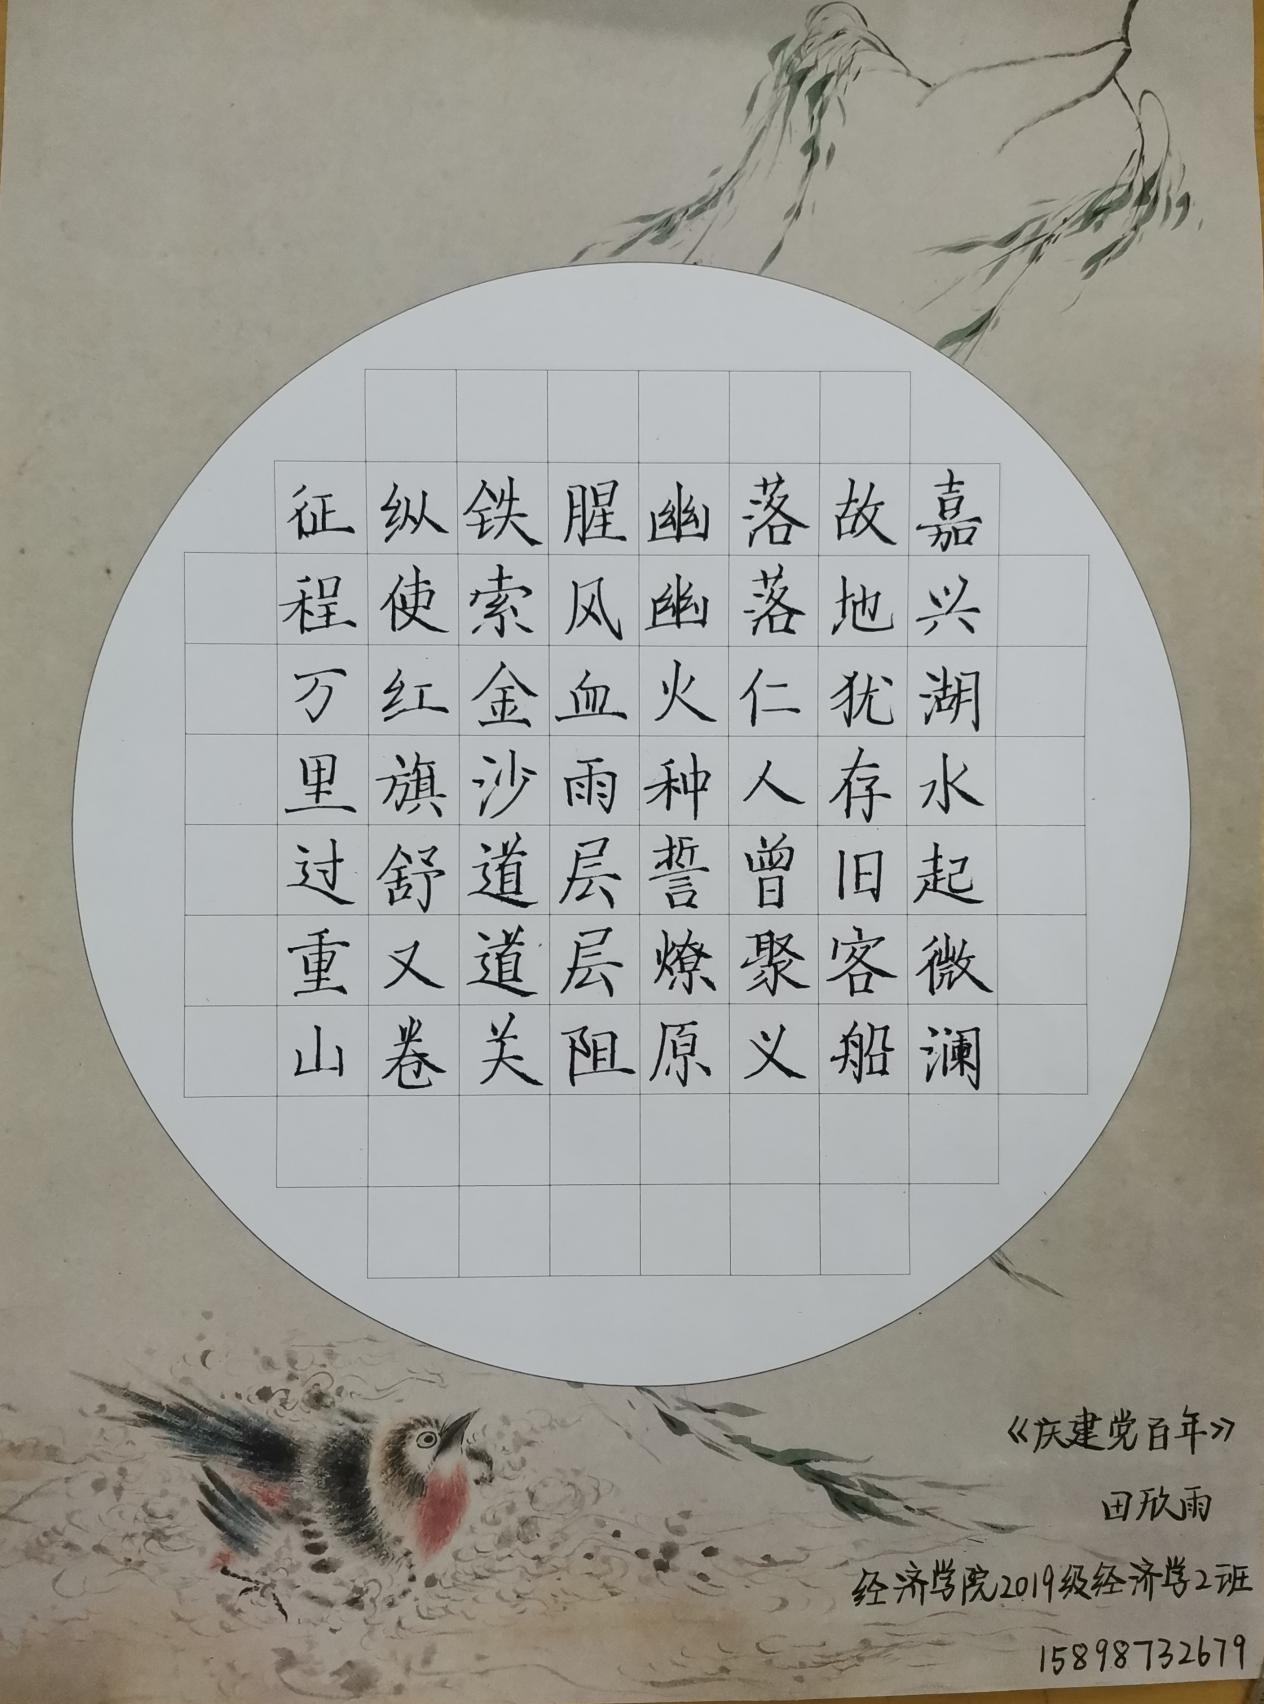 嘉兴湖水起微澜
故地犹存旧客船
落落仁人曾聚义
幽幽火种誓燎原
腥风血雨层层阻
铁索金沙道道关
纵使红旗舒又卷
征程万里过重山
《庆建党百年》
田欣雨
经济学院2019级经济学2班
15898732679